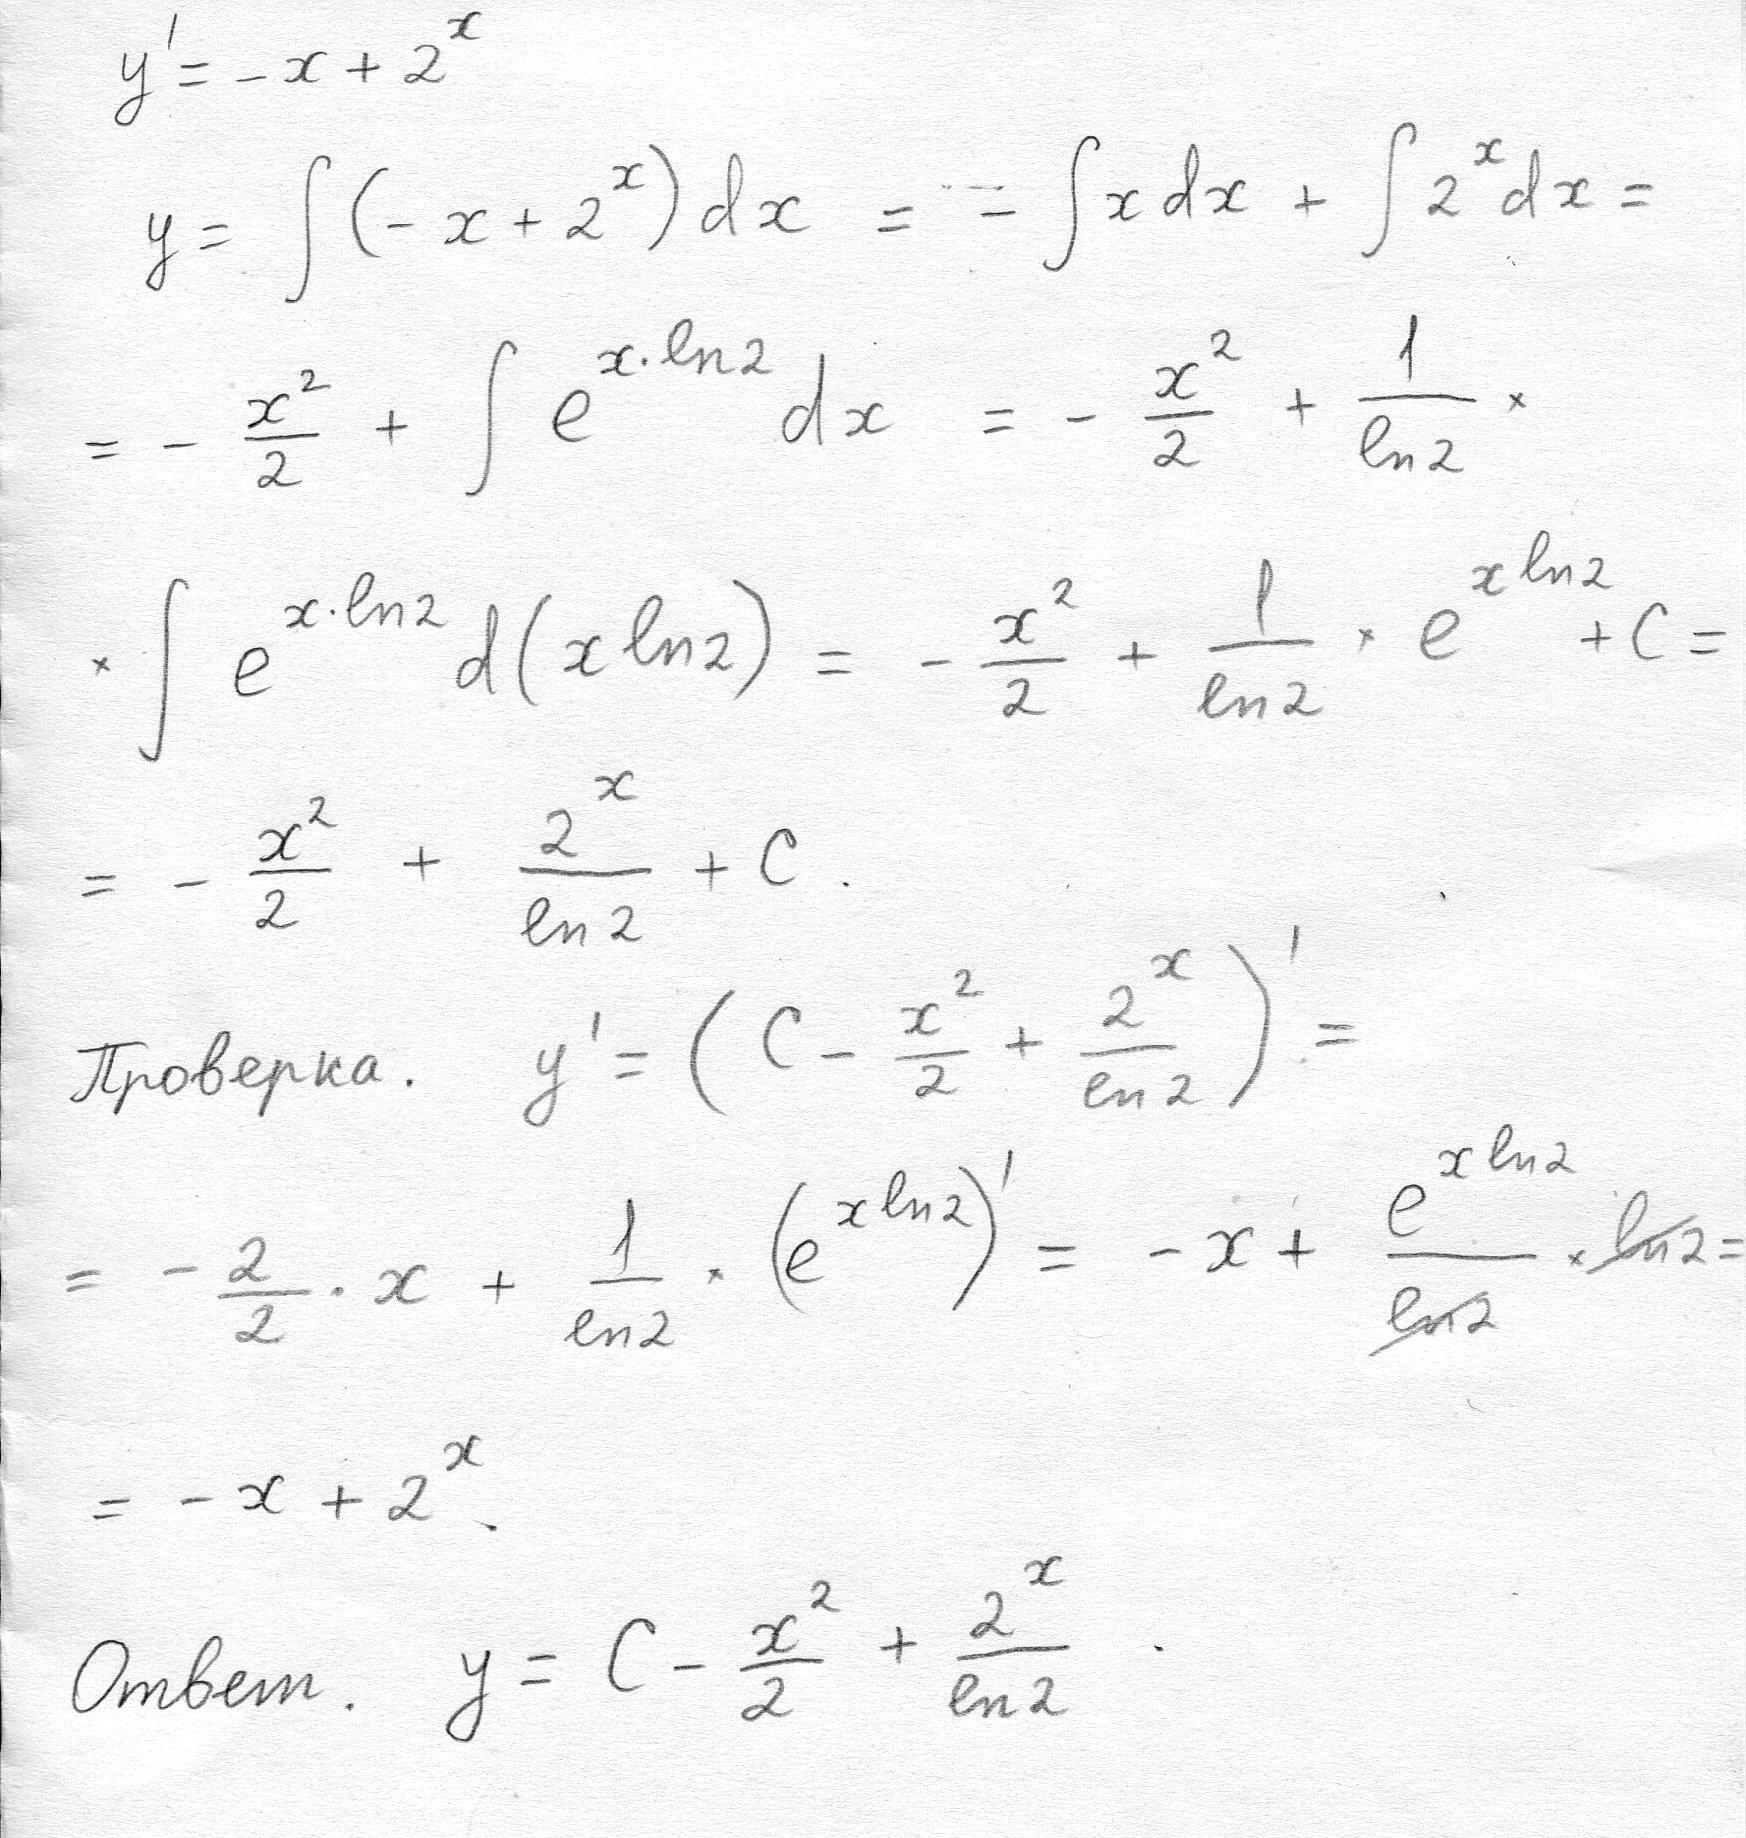 y' = -x + 2^x
y = ∫(-x + 2^x)dx = -∫x dx + ∫2^x dx =
= - x²/2 + ∫e^(x·ln2) dx = - x²/2 + 1/ln2 ×
× ∫e^(x·ln2) d(x ln2) = - x²/2 + 1/ln2 × e^(x ln2) + C =
= - x²/2 + 2^x/ln2 + C.
Проверка. y' = (C - x²/2 + 2^x/ln2)' =
= - 2/2 · x + 1/ln2 · (e^(x ln2))' = -x + e^(x ln2)/ln2 × ln2 =
= -x + 2^x.
Ответ. y = C - x²/2 + 2^x/ln2.